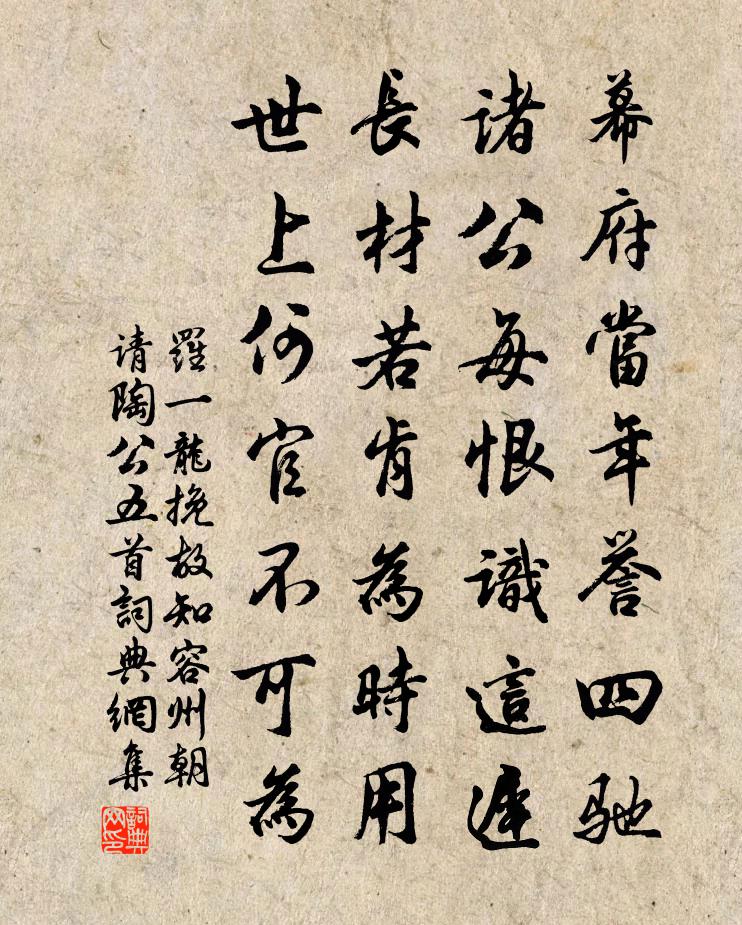 幕府當年譽四馳
諸公每恨識這遲
長材若肯為時用
世上何官不可為
羅一龍挽故知容州朝
请陶公五首詞典網集
詞典網印